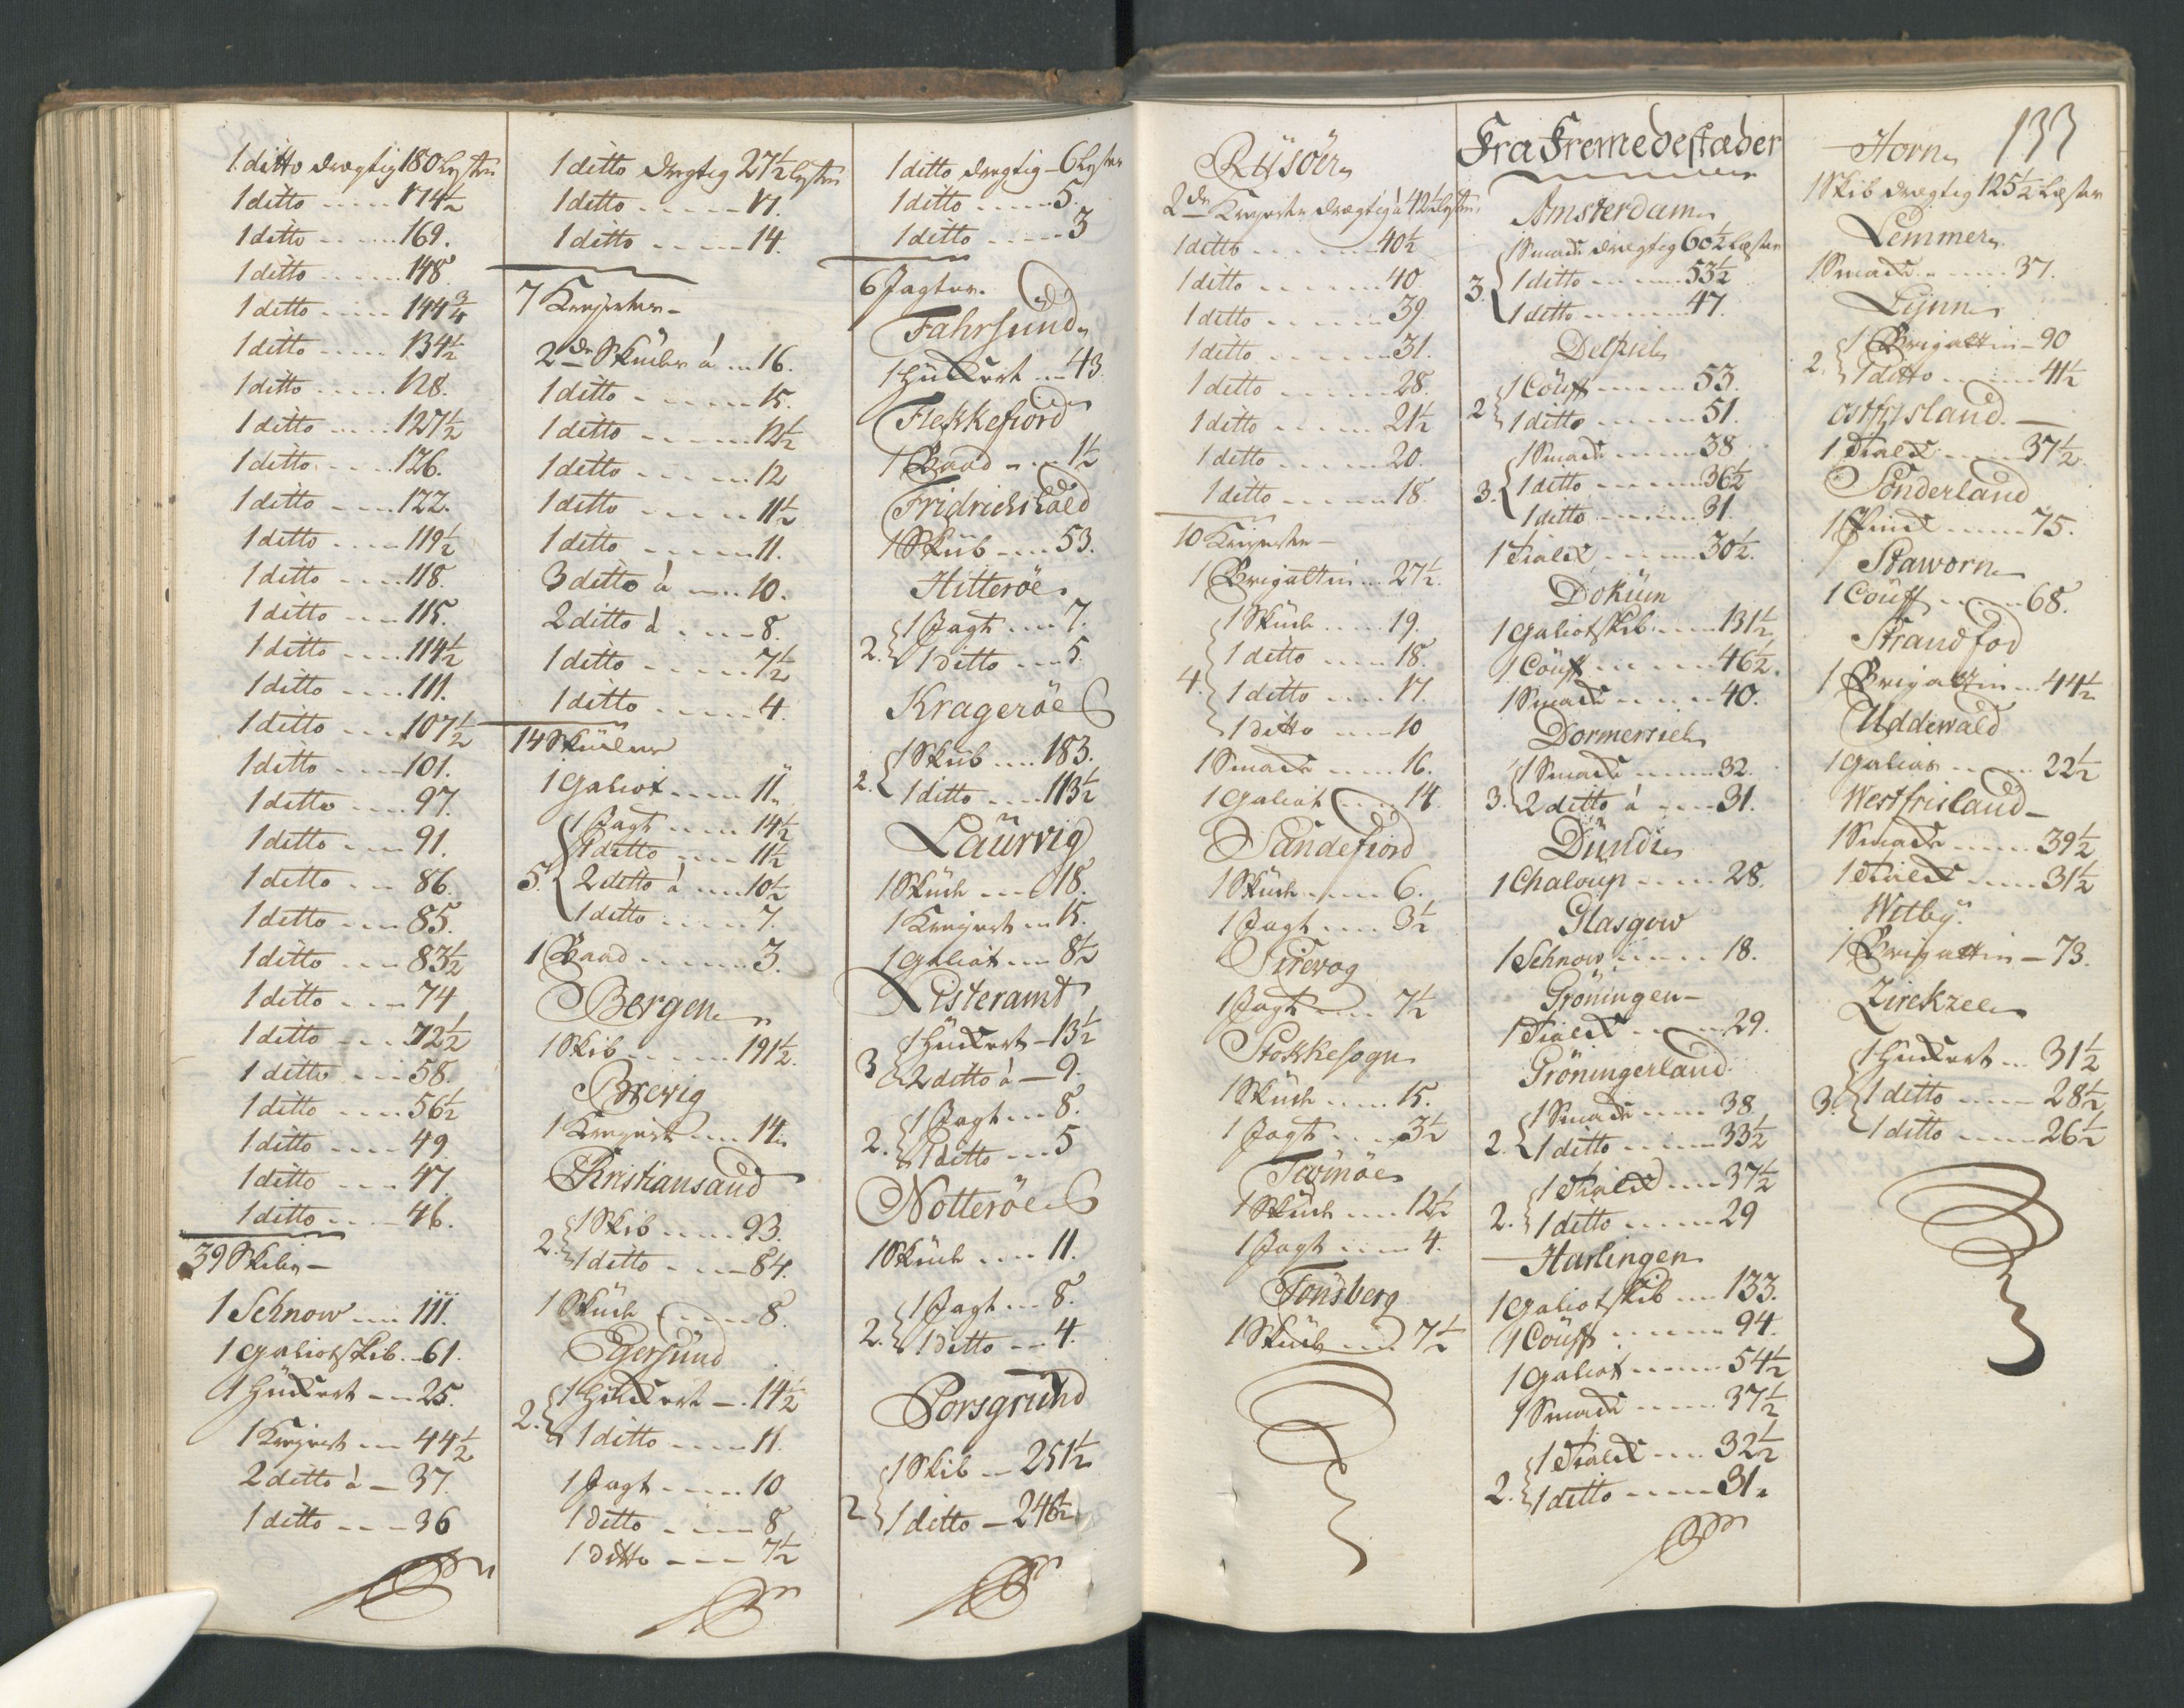 1. ditto drægtig 180 lester
1 ditto ..... 174½
1 ditto ..... 169.
1 ditto ..... 148
1 ditto ..... 144¾
1 ditto ..... 134½
1 ditto ..... 128.
1 ditto ..... 127½
1 ditto .... 126.
1 ditto .... 122.
1 ditto .... 119½
1 ditto .... 118.
1 ditto .... 115.
1 ditto .... 114½
1 ditto .... 111.
1 ditto .... 107½
1 ditto .... 101.
1 ditto .... 97.
1 ditto .... 91.
1 ditto ... 86.
1 ditto ... 85.
1 ditto ... 83½
1 ditto ... 74
1 ditto ... 72½
1 ditto ... 58.
1 ditto .... 56½
1 ditto .... 49.
1 ditto .... 47.
1 ditto .... 46.
39 Skibe –
1 Schnow .... 111.
1 Galiotskib. – 61.
1 Huckert – 25.
1 Kreyert ... 44½
2 ditto à – 37.
1 ditto ... 36
1 ditto drægtig 27½ lester
1 ditto ..... 17.
1 ditto ..... 14.
7 Kreyerter –
2de Skuder à ... 16.
1 ditto ..... 15.
1 ditto ..... 12½
1 ditto ..... 12
1 ditto ..... 11½
1 ditto ..... 11.
3 ditto à .... 10.
2 ditto à .... 8.
1 ditto ..... 7½
1 ditto ..... 4.
14 Skuder
1 Galiot ..... 11„
1 Jagt ..... 14½
1 ditto .... 11½
5. 2 ditto à .... 10½
1 ditto ..... 7.
1 Baad ...... 3.
Bergen
1 Skib ...... 191½.
Brevig
1 Kreyert .... 14„
Christiansand
1 Skib ..... 93.
2. 1 ditto .... 84.
1 Skude ..... 8.
Egersund
1 Huckert – . 14½
2. 1 ditto ..... 11.
1 Jagt ..... 10
1 ditto .... 8
1 ditto ... 7½
1 ditto drægtig – 6 lester
1 ditto ..... 5.
1 ditto ..... 3
6 Jagter.
Fahrsund
1 Huckert ... 43
Flekkefiord
1 Baad .... 1½
Fridrichshald
1 Skib .... 53.
Hitterøe
1 Jagt .... 7.
2. 1 ditto .... 5.
Kragerøe
1 Skib .... 183.
2. 1 ditto .... 113½
Laurvig
1 Skude ... 18.
1 Kreyert ... 15.
1 Galiot ... 8½
Listeramt
1 Huckert – 13½
3 2 ditto à – 9.
1 Jagt ... 8.
2. 1 ditto ... 5
Notterøe
1 Skude .... 11.
1 Jagt ... 8.
2. 1 ditto ... 4.
Porsgrund
1 Skib ... 251½
2 1 ditto – 246½
Rysöer
2de Kreyerter drægtig à 42½ lester
1 ditto ....... 40½
1 ditto ...... 40
1 ditto ...... 39
1 ditto ...... 31.
1 ditto ...... 28.
1 ditto ..... 21½
1 ditto ..... 20.
1 ditto ..... 18.
10 Kreyerter –
1 Brigattin ... 27½.
1 Skude .... 19.
1 ditto .... 18.
4. 1 ditto .... 17.
1 ditto .... 10
1 Smack .... 16.
1 Galiot .... 14.
Sandefiord
1 Skude .... 6.
1 Jagt .... 3½
Sirevog
1 Jagt .... 7½
Stokkesogn
1 Skude .... 15.
1 Jagt .... 3½
1 Skude .... 12½
1 Jagt .... 4.
Tönsberg
1 Skude .... 7½
Fra Fremedestæder
Amsterdam
1 Smack drægtig 60½ Læster
3. 1 ditto ...... 53½
1 ditto ...... 47.
Delfsiel
1 Couff ..... 53.
2 1 ditto ..... 51.
1 Smack .... 38
3. 1 ditto ..... 36½
1 ditto ..... 31
1 Tialck ..... 30½.
Dokum
1 Galiotskib ..... 131½
1 Couff ..... 46½.
1 Smack ..... 40.
Dormersiel
1 Smack ..... 32.
3. 2 ditto à .... 31.
Dundi
1 Chaloup .... 28.
Glasgow
1 Schnow ..... 18.
Gröningen –
1 Tialck ..... 29.
Gröningerland
1 Smack .... 38
2. 1 ditto ..... 33½
1 Tialck .... 37½
2. 1 ditto ..... 29
Harlingen
1 Galiotskib .... 133.
1 Couff ...... 94.
1 Galiot ..... 54½
1 Smack ..... 37½
1 Tialck .... 32½
2. 1 ditto ..... 31.
133
Horn
1 Skib drægtig 125½ Læster
Lemmer
1 Smack ...... 37.
Lynn
1 Brigattin – 90
2. 1 ditto ..... 41½
Ostfrisland. –
1 Tialck ..... 37½
Sönderland
1 Pinck ..... 75.
Staworn
1 Couff ..... 68.
Strandfod
1 Brigattin ... 44½
Uddewald
1 Galias ..... 22½
Westfrisland –
1 Smack ..... 39½
1 Tialck ..... 31½
Witby
1 Brigattin – 73.
Zirckzee
1 Huckert ... 31½
3. 1 ditto ..... 28½
1 ditto ..... 26½